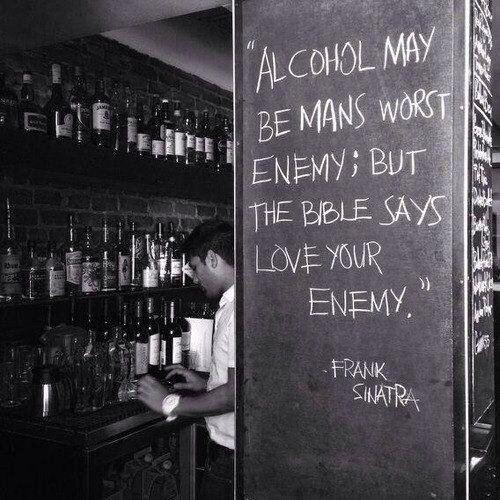 "ALCOHOL MAY
BE MANS WORST
ENEMY; BUT
THE BIBLE SAYS
LOVE YOUR
ENEMY."
- FRANK
SINATRA